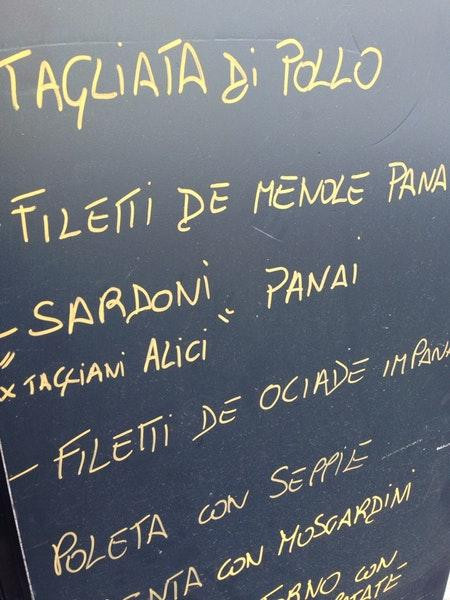 TAGLIATA Di POLLO
- FiLETTi DE MENOLE PANA
- SARDONi PANAi
"x TAGLiANi ALiCi"
- FiLETTi DE OCIADE iMPANA
POLETA CON SEPPIE
ENTA CON MOSCARDiNi
ORNO CON
TATE-